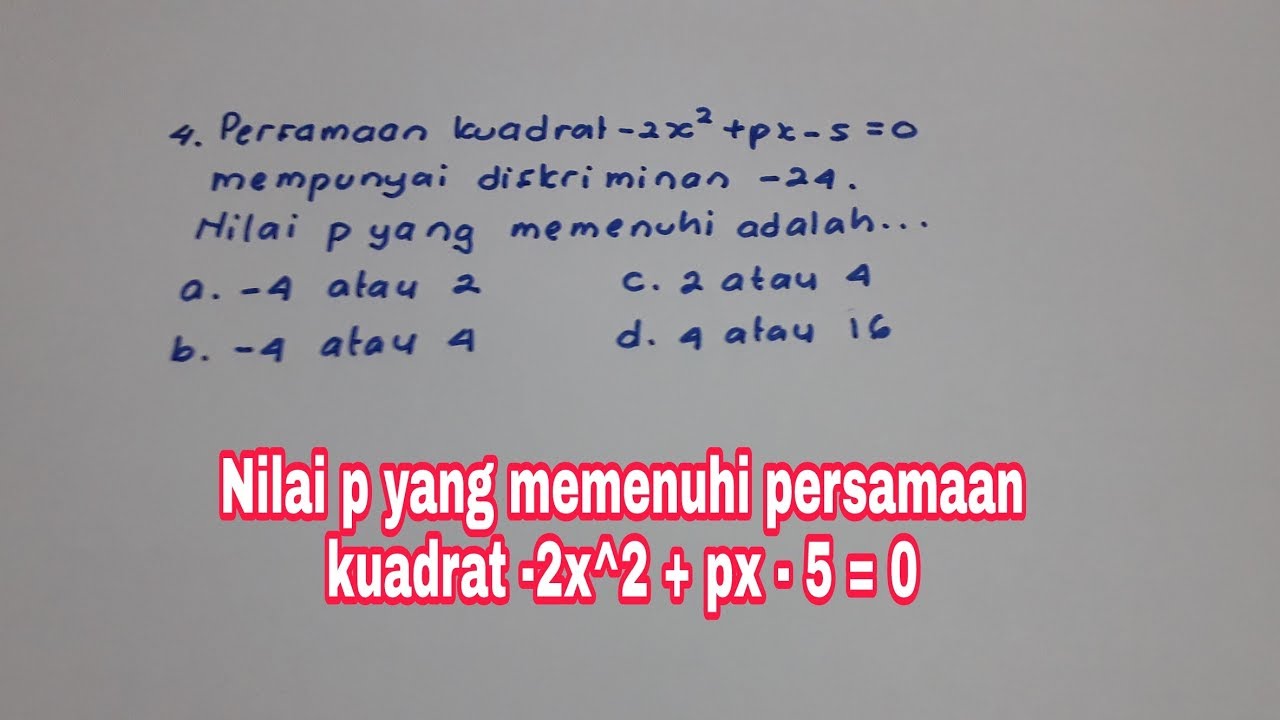 4. Persamaan kuadrat -2x² + px - 5 = 0
mempunyai diskriminan -24.
Nilai p yang memenuhi adalah...
a. -4 atau 2 c. 2 atau 4
b. -4 atau 4 d. 4 atau 16
Nilai p yang memenuhi persamaan
kuadrat -2x^2 + px - 5 = 0